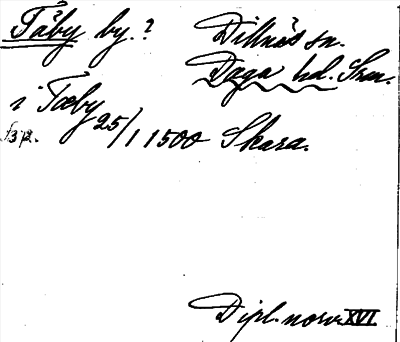 Täby by.? Dillnäs sn.
Daga hd. Srm.
i Tæby
f3p. 25/1 1500 Skara.
Dipl. norv. XVI